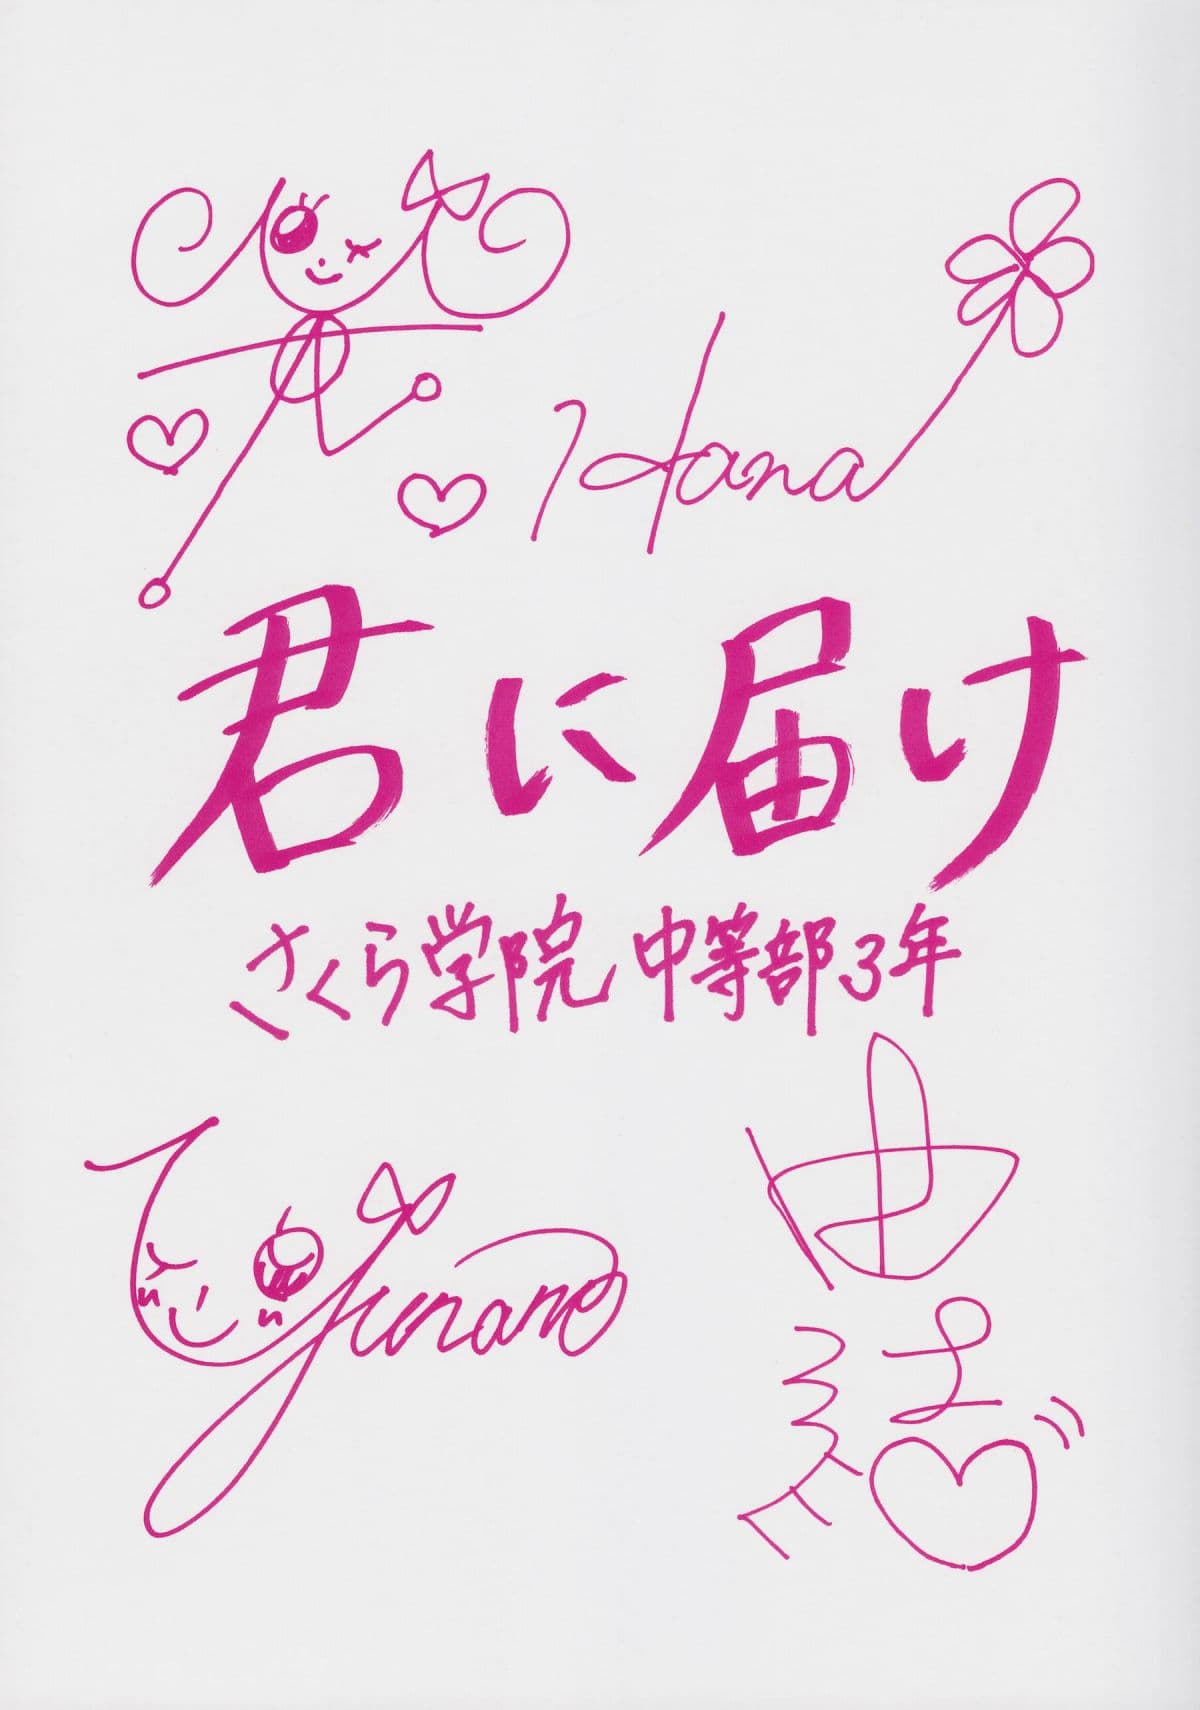 Hana
君に届け
さくら学院 中等部3年
Yunano
由結